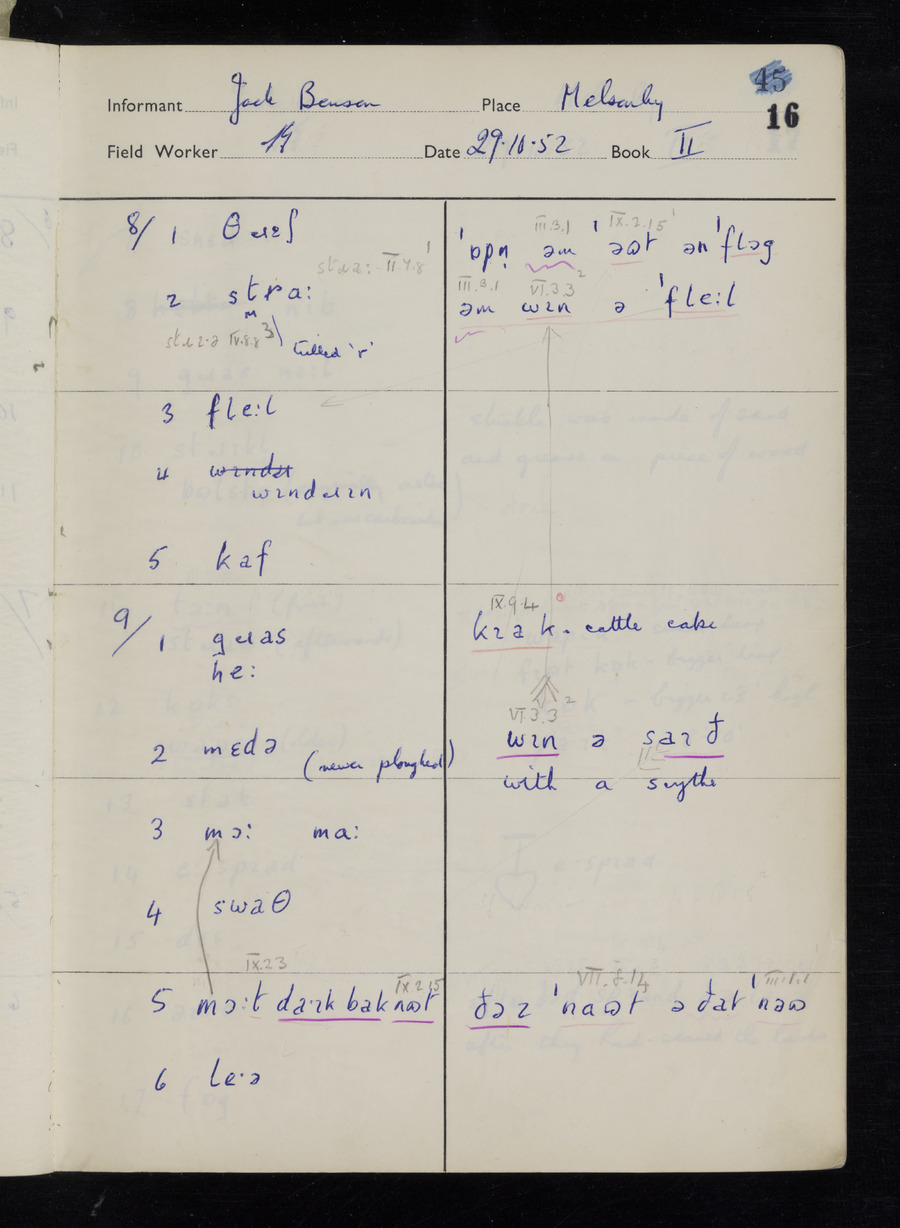 45
16
Informant Jack Benson Place Melsonby
Field Worker Date 29.10.52 Book II
8/ 1 θɹɛʃ
ˈɒpn̩ əm
III.3.1
IX.2.15
ən ˈfləg
II.4.8
2 stɹa:
III.3.1
VI.3.3 2
əm wɪn ə ˈfle:l
IV.8.8 3
trilled 'r'
3 fle:l
4 wɪndəɹ
wɪndɹɪn
5 kaf
9/ 1 gɹas
he:
IX.9.4
kɪək - cattle cake
VI.3.3 2
2 mɛdə (never ploughed)
wɪn ə saɪđ
with a scythe
3 mɔ: ma:
4 swaθ
IX.23
IX 2.15
5 mɔ:t da:ɪk bak nωt
VII.8.14
III.1.1
đəɪ ˈnaωt ə đat ˈnəω
6 le·ə